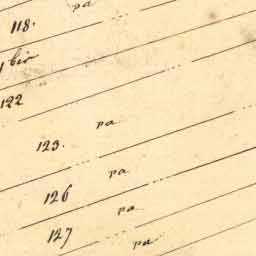 pa
118.
bis
122
pa
123.
pa
126
pa
127
pa